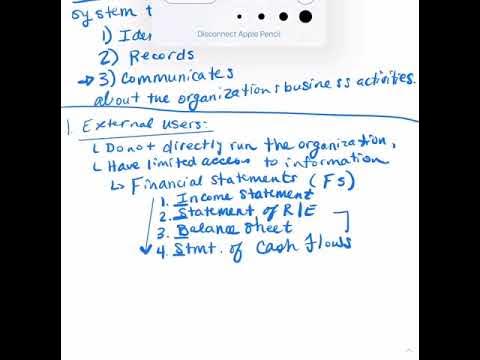 system t
Disconnect Apple Pencil
1) Ide
2) Records
→ 3) Communicates
about the organizations business activities.
1. External users:
↳ Do not directly run the organization,
↳ Have limited access to information
↳ Financial statements (FS)
1. Income Statement
2. Statement of R/E
3. Balance Sheet
4. Stmt. of Cash flows